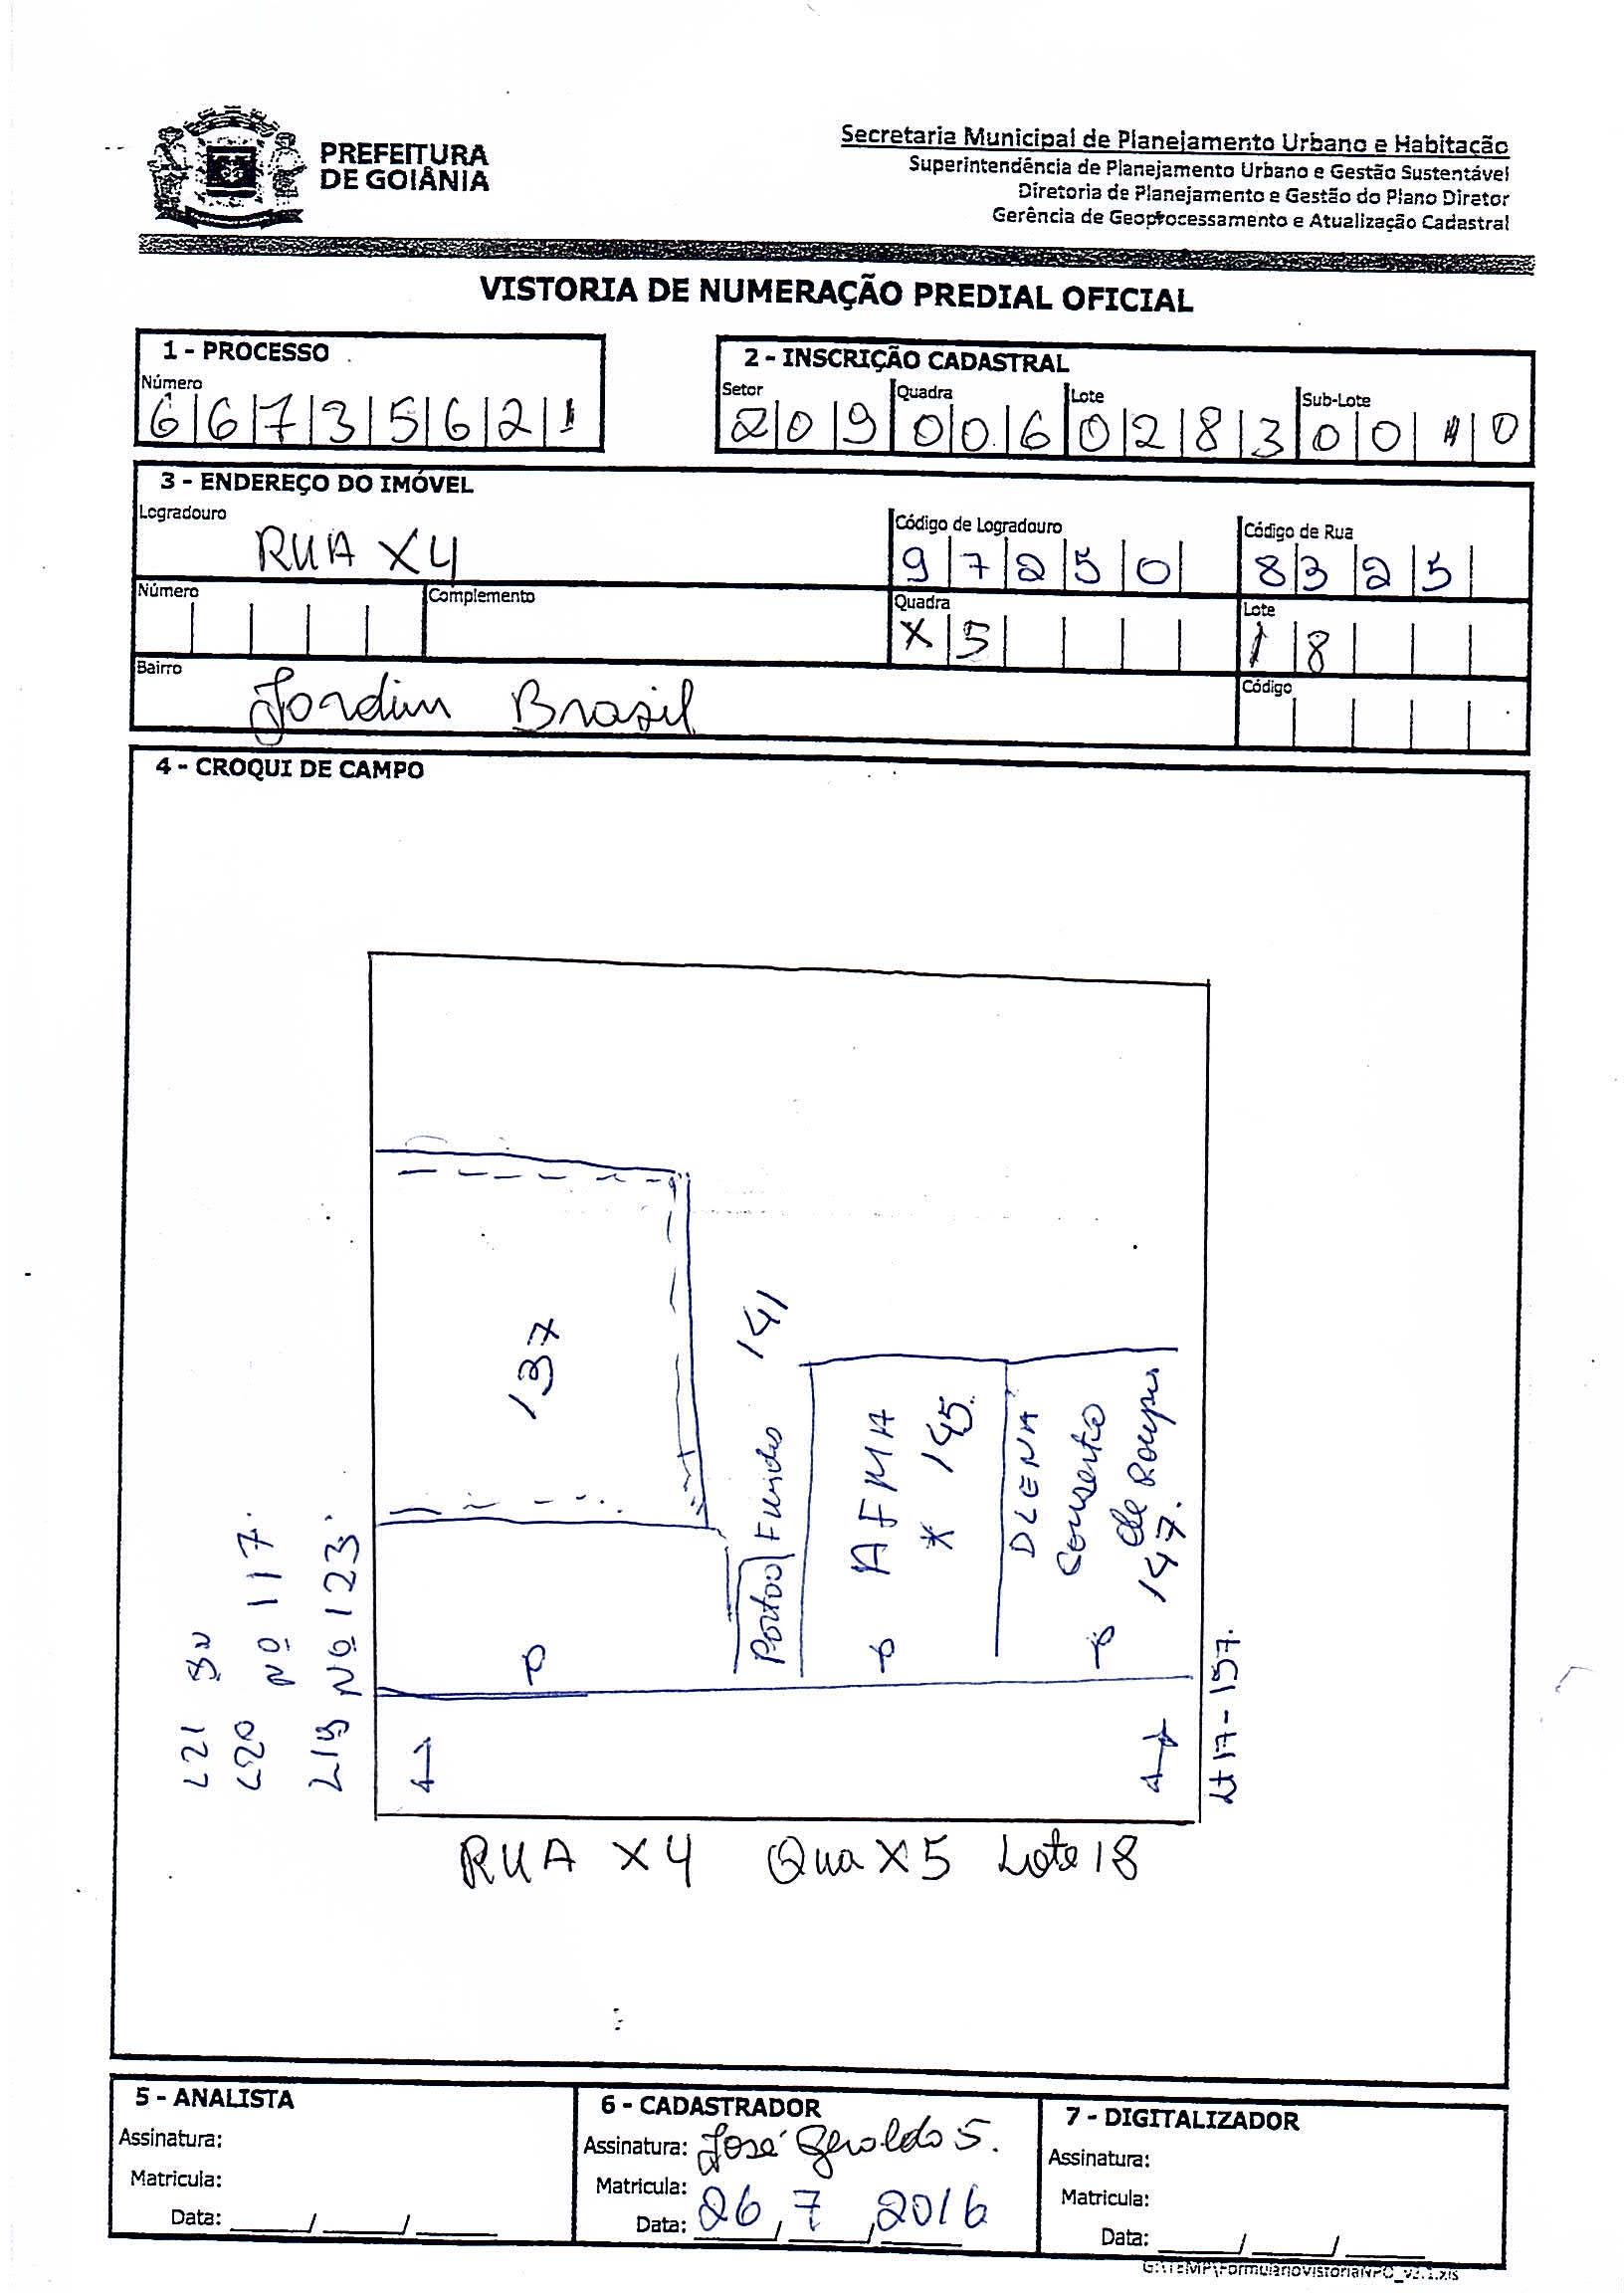 PREFEITURA
DE GOIÂNIA
Secretaria Municipal de Planejamento Urbano e Habitação
Superintendência de Planejamento Urbano e Gestão Sustentável
Diretoria de Planejamento e Gestão do Plano Diretor
Gerência de Geoprocessamento e Atualização Cadastral
VISTORIA DE NUMERAÇÃO PREDIAL OFICIAL
1 - PROCESSO
Número
6 6 7 3 5 6 2 1
2 - INSCRIÇÃO CADASTRAL
Setor Quadra Lote Sub-Lote
2 0 9 0 0 6 0 2 8 3 0 0 0
3 - ENDEREÇO DO IMÓVEL
Logradouro
RUA X4
Código de Logradouro
9 7 2 5 0
Código de Rua
8 3 2 5
Número
Complemento
Quadra
X 5
Lote
1 8
Bairro
Jardim Brasil
Código
4 - CROQUI DE CAMPO
137
141
Portão Fundo
AFMA
* 145
DLENA
Conserto
de Roupas
147.
L21 SN
L20 Nº 117.
L19 Nº 123.
Lt 17-157.
RUA X4 Qua X5 Lote 18
5 - ANALISTA
Assinatura:
Matricula:
Data: ____/____/____
6 - CADASTRADOR
Assinatura: José Geraldo S.
Matricula:
Data: 26/7/2016
7 - DIGITALIZADOR
Assinatura:
Matricula:
Data: ____/____/____
G:\TEMP\FormularioVistoriaNPO_v2.1.xls